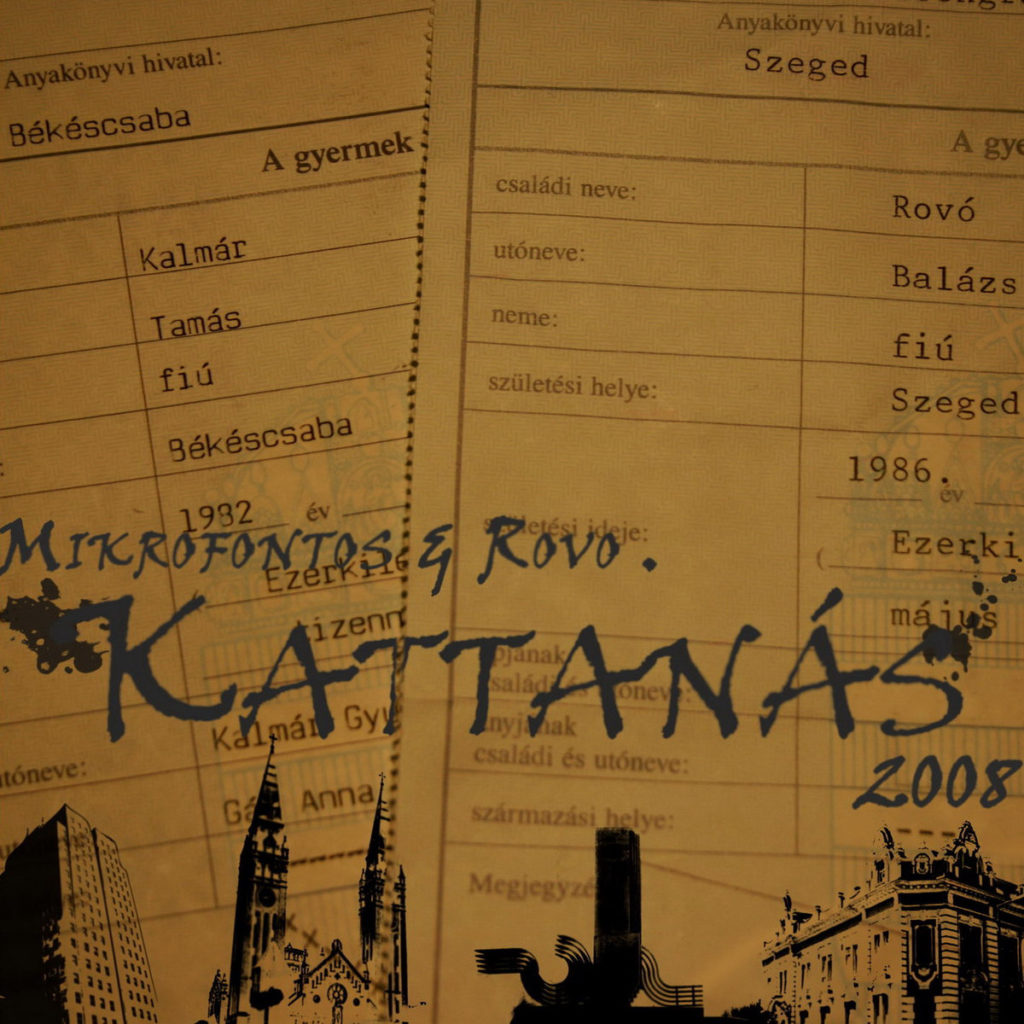 Anyakönyvi hivatal:
Békéscsaba
A gyermek
Kalmár
Tamás
fiú
Békéscsaba
1982 év
Ezerkile
tizenn
Kalmár Gyu
utóneve:
Anna
Anyakönyvi hivatal:
Szeged
A gye
családi neve: Rovó
utóneve: Balázs
neme: fiú
születési helye: Szeged
1986. év
születési ideje:
( Ezerki
május
apjának
családi és utóneve:
anyjának
családi és utóneve:
származási helye: ----
Megjegyzé
Mikrofontos & Rovo.
Kattanás
2008